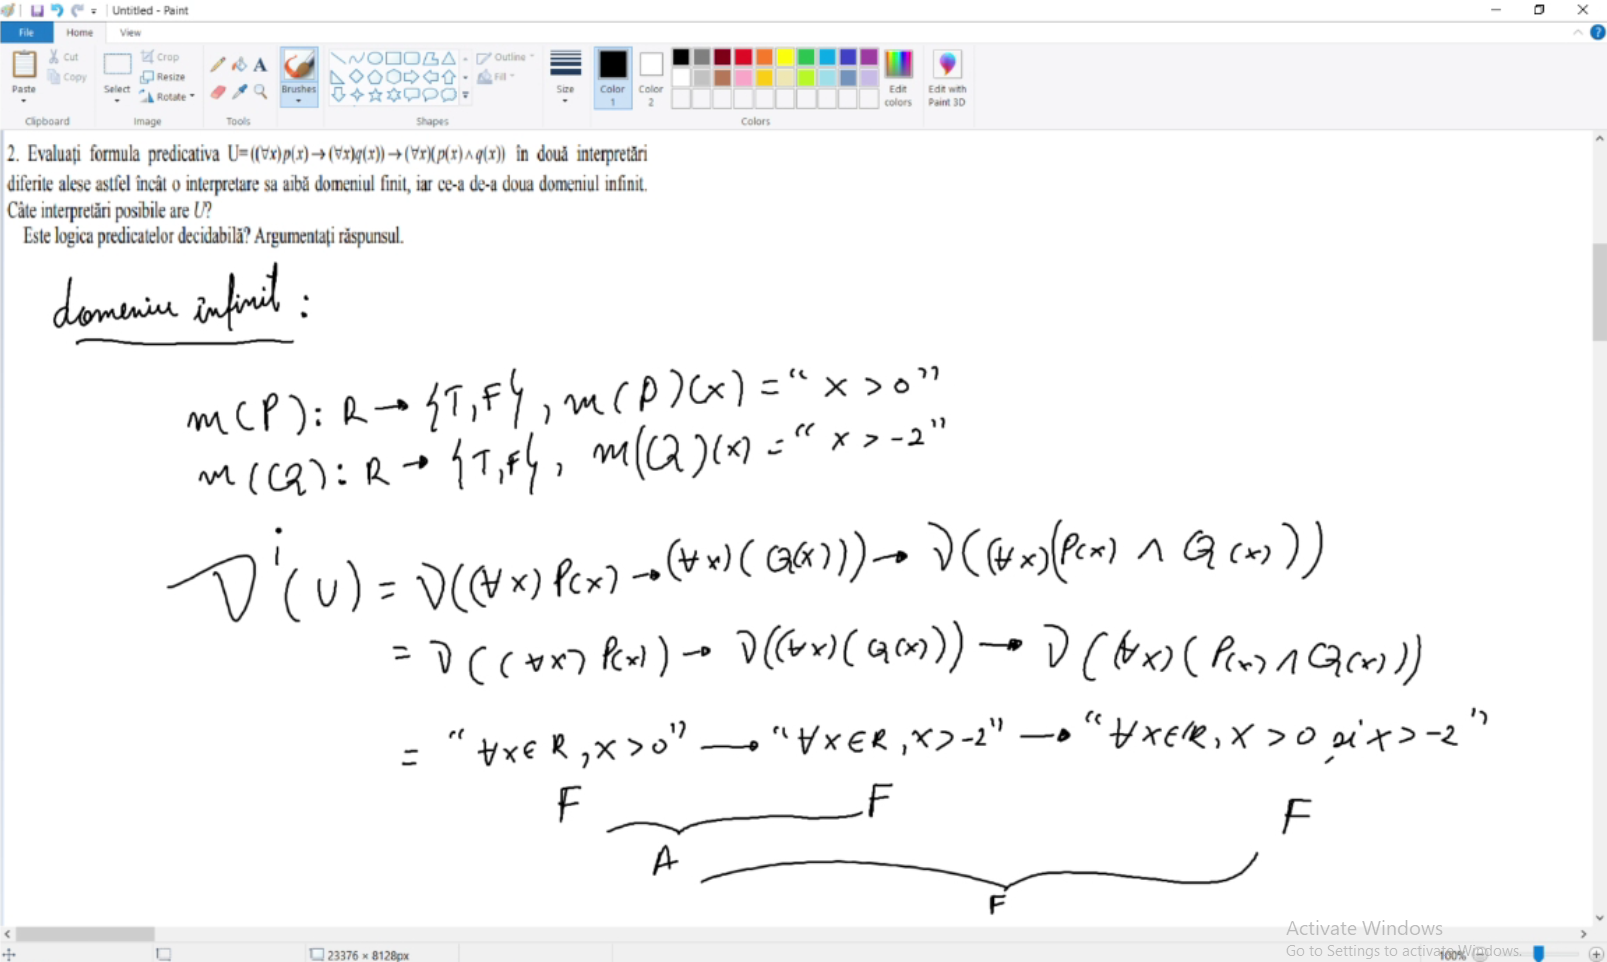 Untitled - Paint
File Home View
Cut
Copy
Paste
Clipboard
Crop
Resize
Rotate
Select
Image
A
Tools
Brushes
Outline
Fill
Shapes
Size
Color 1
Color 2
Edit colors
Edit with Paint 3D
Colors
2. Evaluați formula predicativa U=((∀x)p(x)→(∀x)q(x))→(∀x)(p(x)∧q(x)) în două interpretări
diferite alese astfel încât o interpretare sa aibă domeniul finit, iar ce-a de-a doua domeniul infinit.
Câte interpretări posibile are U?
Este logica predicatelor decidabilă? Argumentați răspunsul.
domeniu infinit :
m(P): R → {T,F}, m(P)(x) = “ x > 0 ”
m(Q): R → {T,F}, m(Q)(x) = “ x > -2 ”
V^i(U) = V((∀x) P(x) → (∀x)(Q(x))) → V((∀x)(P(x) ∧ Q(x)))
= V((∀x) P(x)) → V((∀x)(Q(x))) → V(∀x)(P(x) ∧ Q(x)))
= “ ∀x∈R, x > 0 ” → “ ∀x∈R, x > -2 ” → “ ∀x∈R, x > 0 și x > -2 ”
F F F
A
F
Activate Windows
Go to Settings to activate Windows.
23376 × 8128px
100%